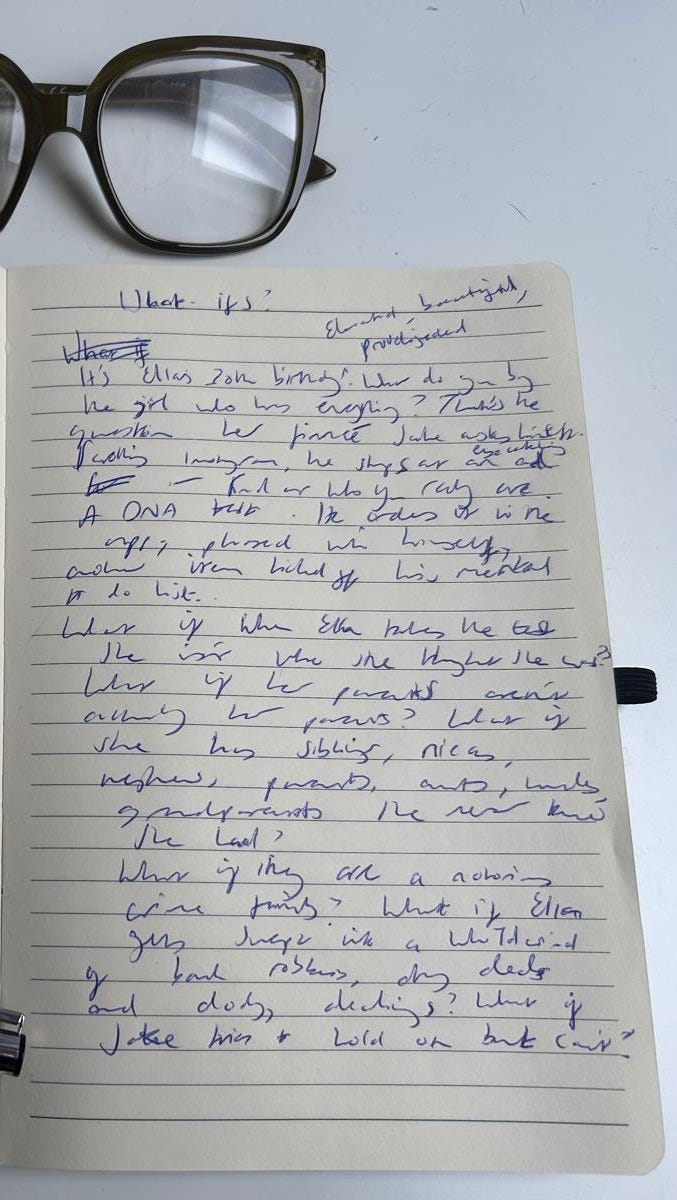 What ifs?
Educated, beautiful,
privileged
What if
It's Ella's 30th birthday. What do you buy
the girl who has everything? That's the
question her fiancé Jake asks himself.
Scrolling Instagram, he stops at an ad
– Find out who you really are.
A DNA test. He orders it in the
app, pleased with himself,
another item ticked off his mental
to do list.
What if when Ella takes the test
she isn't who she thought she was?
What if her parents aren't
actually her parents? What if
she has siblings, nieces,
nephews, parents, aunts, uncles,
grandparents she never knew
she had?
What if they are a notorious
crime family? What if Ella
gets swept into a whirlwind
of bank robbers, drug deals
and dodgy dealings? What if
Jake tries to hold on but can't?